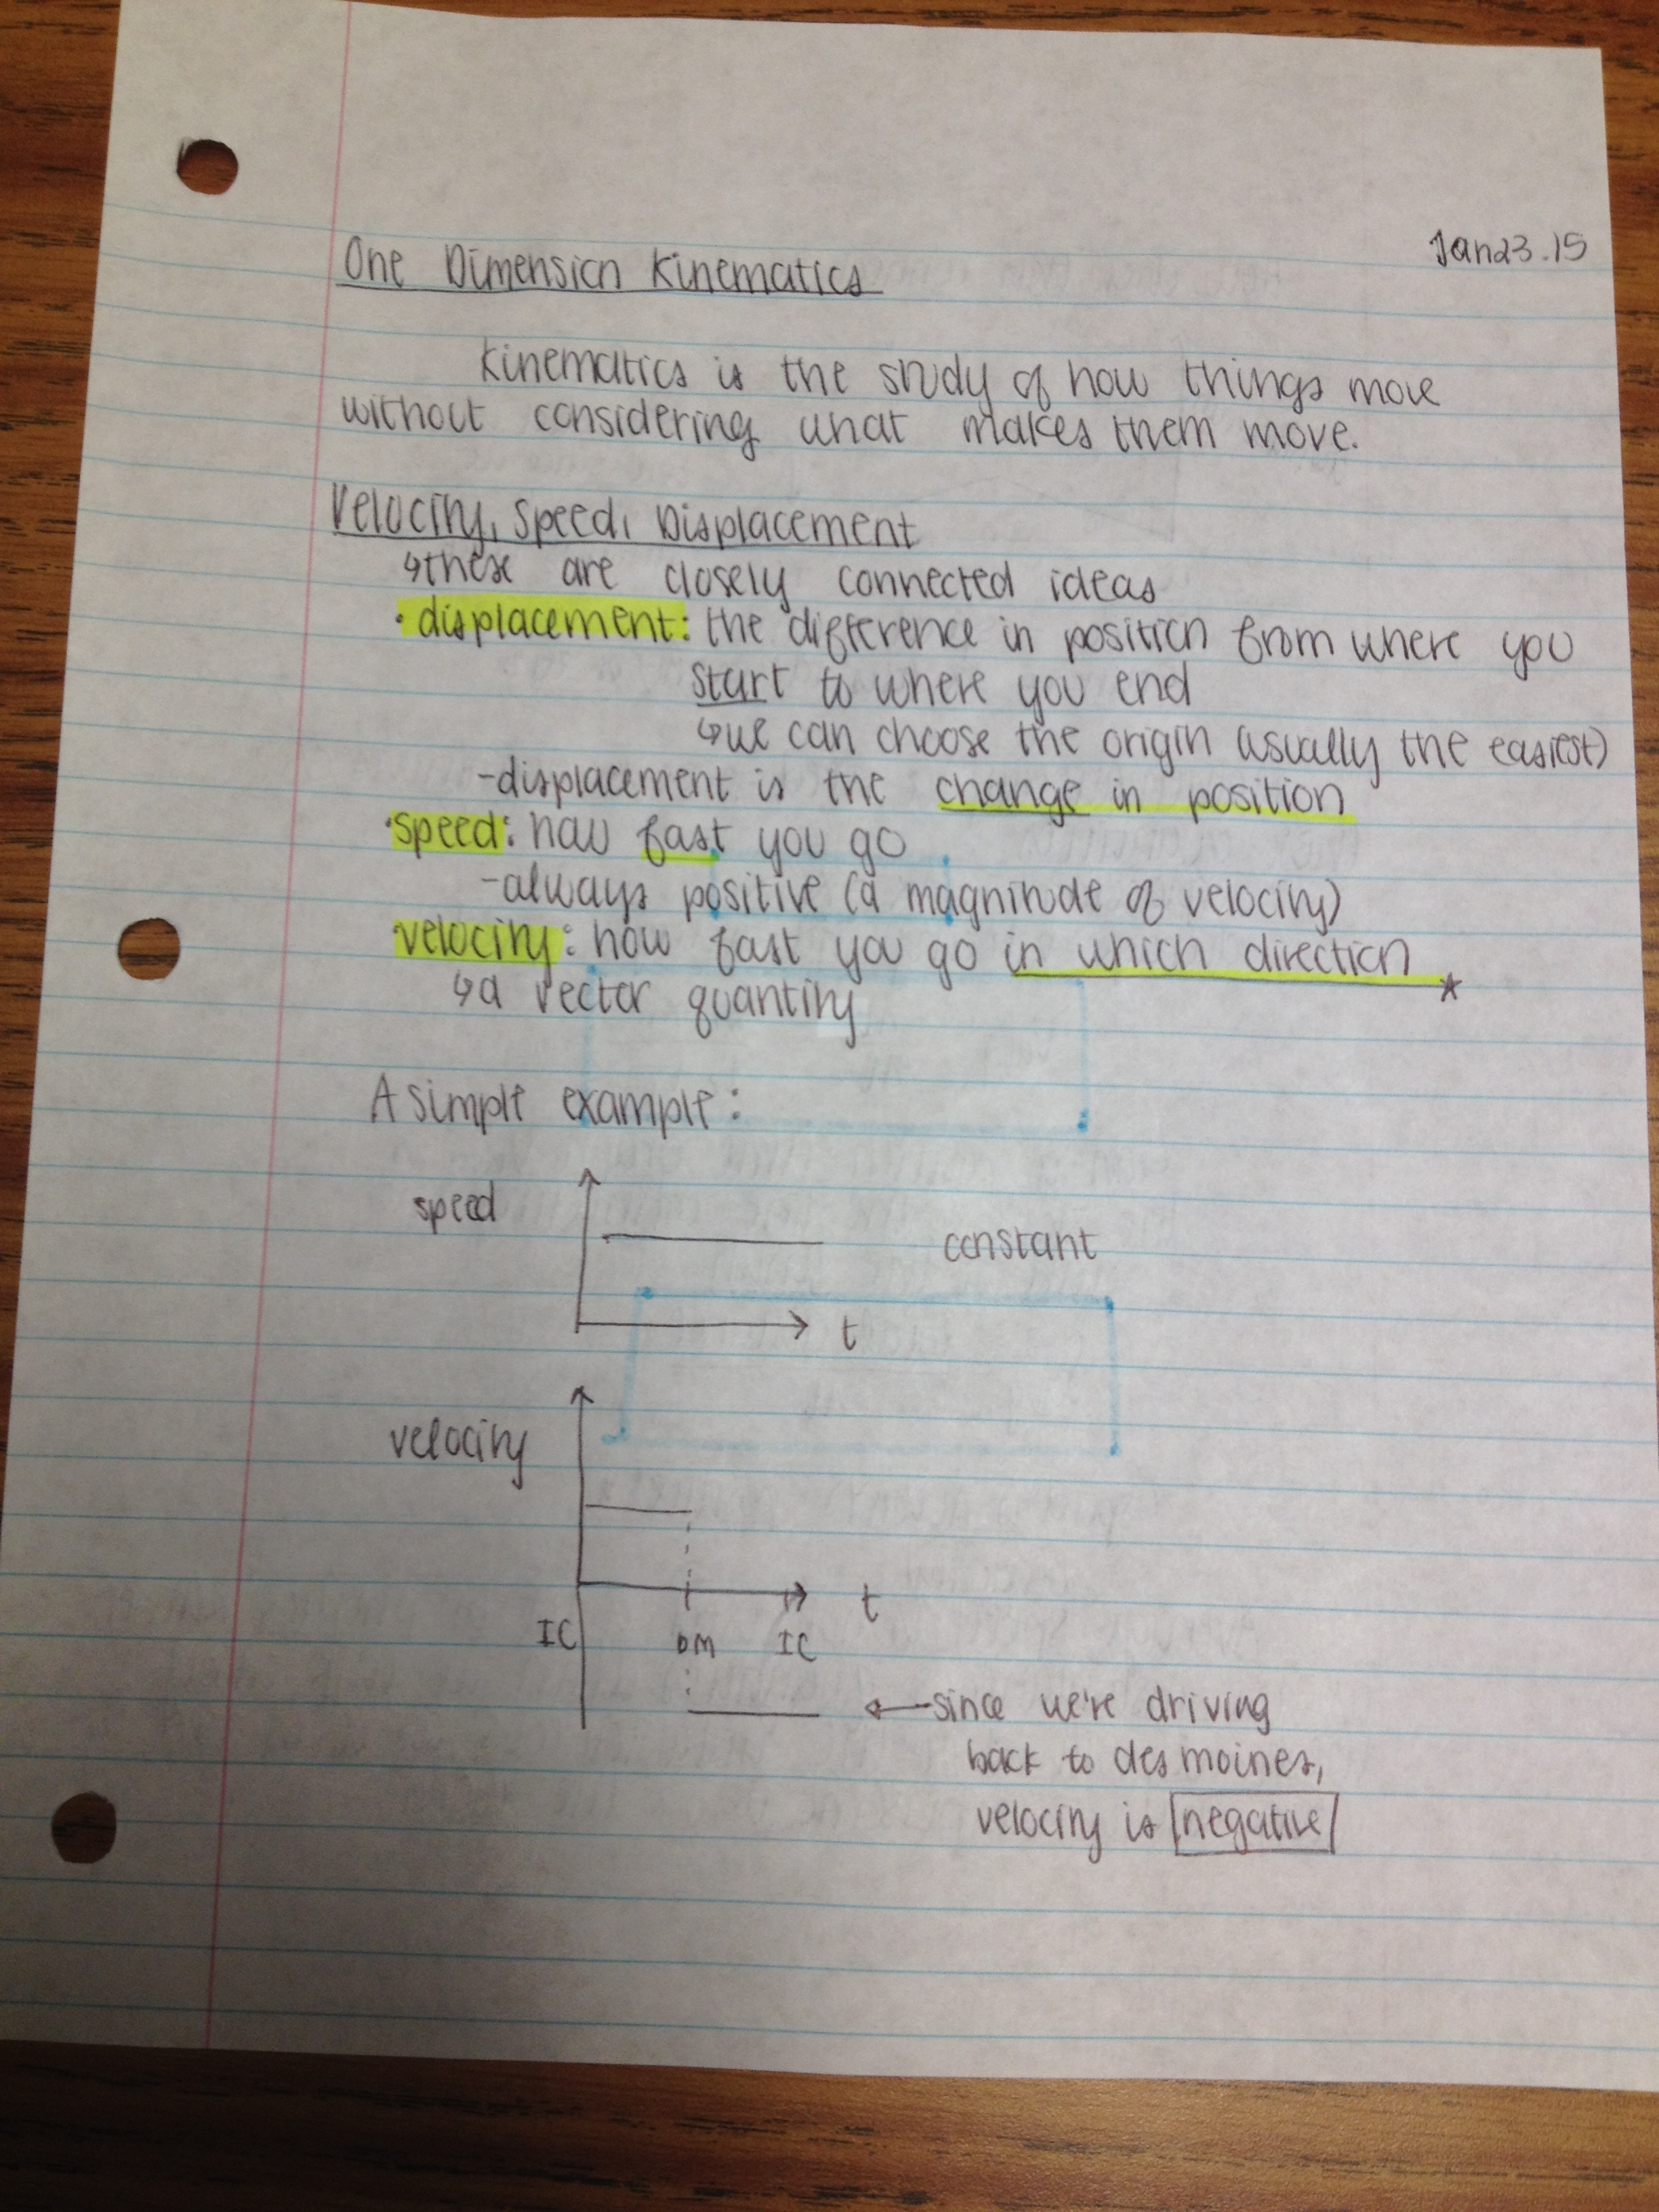 Jan 23.15
One Dimension Kinematics
Kinematics is the study of how things move
without considering what makes them move.
Velocity, Speed, Displacement
↳these are closely connected ideas
• displacement: the difference in position from where you
start to where you end
↳we can choose the origin (usually the easiest)
-displacement is the change in position
•speed: how fast you go
-always positive (a magnitude of velocity)
•velocity: how fast you go in which direction *
↳a vector quantity
A simple example:
speed
constant
t
velocity
t
IC DM IC
←since we're driving
back to des moines,
velocity is negative